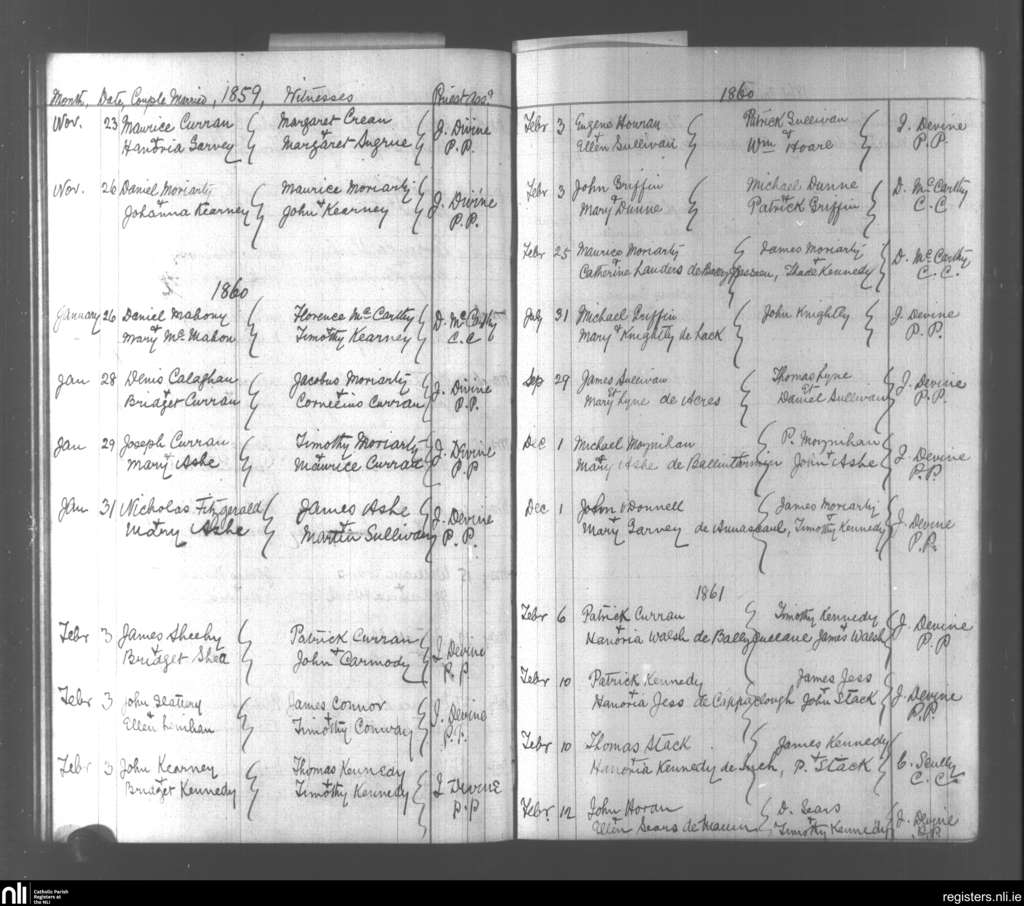 Month, Date, Couple Married, 1859, Witnesses Priest Assd
Nov. 23 Maurice Curran Margaret Crean J. Divine
& Hanoria Garvey & Margaret Sugrue P.P.
Nov. 26 Daniel Moriarty Maurice Moriarty J. Divine
& Johanna Kearney & John Kearney P.P.
1860
January 26 Daniel Mahony Florence McCarthy D. McCarthy
& Mary McMahon & Timothy Kearney C.C
Jan 28 Denis Calaghan Jacobus Moriarty J. Divine
& Bridget Curran & Cornelius Curran P.P.
Jan 29 Joseph Curran Timothy Moriarty J. Divine
& Mary Ashe & Maurice Curran P.P
Jan 31 Nicholas Fitzgerald James Ashe J. Devine
& Mary Ashe & Martin Sullivan P.P.
Febr 3 James Sheehy Patrick Curran J. Devine
& Bridget Shea & John Carmody P.P
Febr 3 John Slattery James Connor J. Devine
& Ellen Lenihan & Timothy Conway P.P.
Febr 3 John Kearney Thomas Kennedy J Devine
& Bridget Kennedy & Timothy Kennedy P.P
1860
Febr 3 Eugene Houran Patrick Sullivan J. Devine
& Ellen Sullivan & Wm Hoare P.P.
Febr 3 John Griffin Michael Dunne D. McCarthy
& Mary Dunne & Patrick Griffin C.C
Febr 25 Maurice Moriarty James Moriarty D. McCarthy
& Catherine Landers de Kennedy C.C.
July 31 Michael Griffin John Knightly J. Devine
& Mary Knightly de Lack P.P.
Sep 29 James Sullivan Thomas Lyne J. Devine
et Mary Lyne de Acres et Daniel Sullivan P.P.
Dec 1 Michael Moynihan P. Moynihan J Devine
& Mary Ashe de & John Ashe P.P.
Dec 1 John O'Donnell James Moriarty J. Devine
& Mary Garvey de Annascaul, & Timothy Kennedy P.P.
1861
Febr 6 Patrick Curran Timothy Kennedy J. Devine
& Hanoria Walsh de & James Walsh P.P
Febr 10 Patrick Kennedy James Jess J. Devine
& Hanoria Jess de & John Stack P.P.
Febr 10 Thomas Stack James Kennedy C. Scully
& Hanoria Kennedy de Inch, & P. Stack C.C.
Febr. 12 John Horan D. Sears J. Devine
& Ellen Sears de & Timothy Kennedy P.P.
nli Catholic Parish Registers at the NLI registers.nli.ie